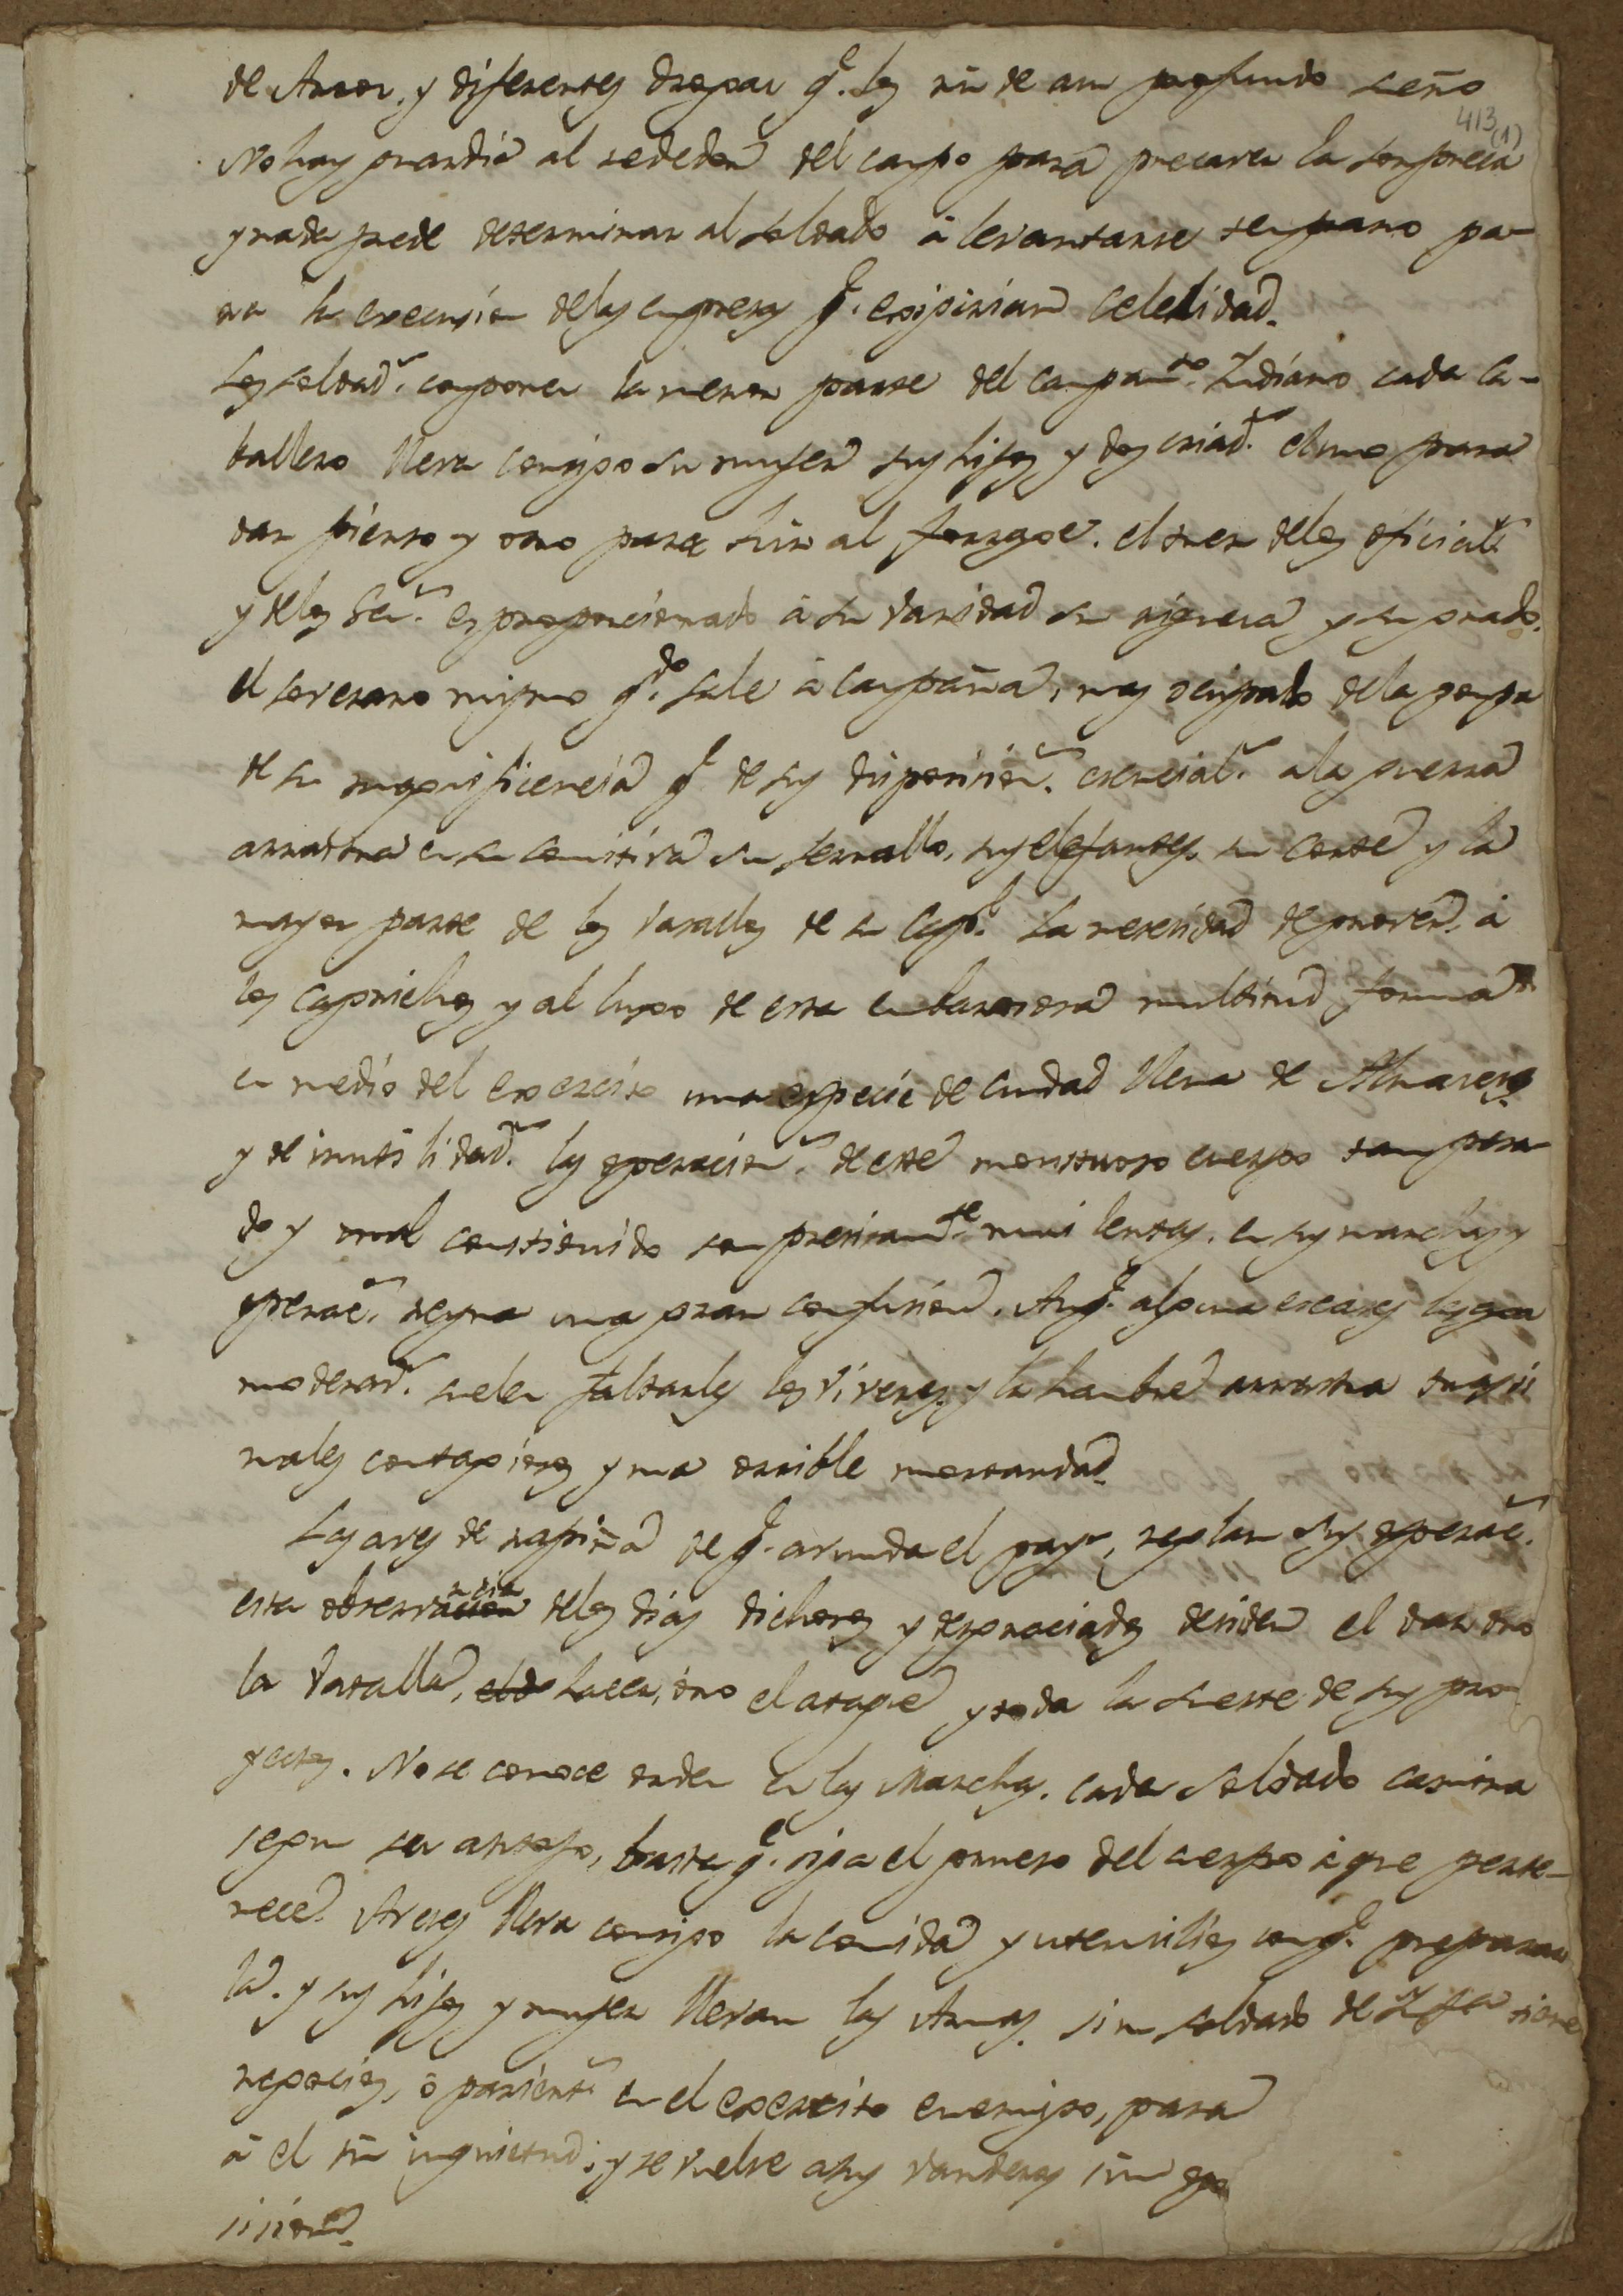 de Arroz, y diferentes drogas q.e los un de an profundo seño
413 (1)
No hay guardia al rededor del campo para precaver la sorpresa
y nada puede determinar al soldado à levantarse tenprano pa-
ra la execusion de las enpresas q.e exijirian celeridad.
Los soldad.s conponen la menor parte del campam.to Yndiano cada ca-
ballero lleva consigo su muger sus hijos y dos criad.s el uno para
dar pienso y otro para hir al forrage. el tren de los oficial.s
y de los Señ.s es proporcionado à su vanidad su riqueza y su grado.
el soverano mismo q.do sale à Canpaña, mas ocupado de la ponpa
de su magnificencia q.e de sus disposicion.s esencial.s a la guerra
arrastra en su comitiva su serrallo, sus elefantes, su corte y la
mayor parte de los vasallos de su Cap.l La nesesidad de proveer à
los caprichos y al lujo de esta enbarasosa multitud forma
en medio del exercito una especie de ciudad llena de Almasenes
y de inutilidad.s las operacion.s de este monstruoso cuerpo tan pesa-
do y mal constituido son presisam.te mui lentas. en sus marchas y
operac.s reyna una gran confusion. Aunq.e alguna escases
moderad.s suelen faltarles los viveres, y la hanbre arrastra tras si
males contagiosos y una orrible mortandad.
Las aves de rapiña de q.e avunda el pays, reglan sus operac.s
esta observancia de los dias dichosos y desgraciados desiden el dar ôno
la vatalla, hacer, ôno el ataque y toda la suerte de sus pro-
yectos. No se conoce orden en las Marchas. cada soldado camina
segun su antojo, basta q.e siga el grueso del cuerpo à que perte-
nece. Aveses lleva consigo la comida y utensilios con q.e preparar
la. y sus hijos y muger llevan las Armas. si un soldado de tiene
negocios, ô parient.s en el exercito enemigo, pasa
à el sin inquietud, y se vuelve a sus vanderas sin opo
sision.